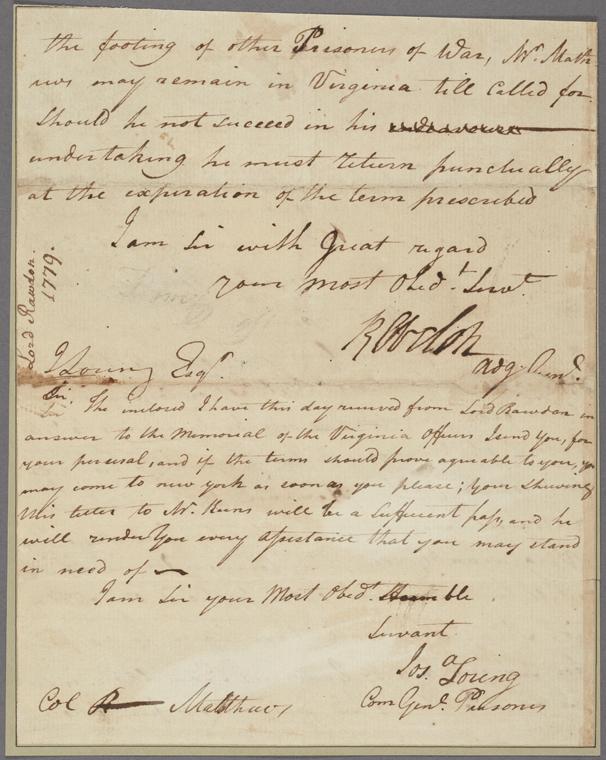 the footing of other Prisoners of War, Mr. Math
ws may remain in Virginia till Called for
Should he not succeed in his endeavours
undertaking he must return punctually
at the expiration of the term prescribed
I am Sir with Great regard
your most Obedt. Servt.
Rawdon
Adg. Genl.
Lord Rawdon.
1779.
J Loring Esqr.
Sir. The inclosed I have this day received from Lord Rawdon in
answer to the Memorial of the Virginia Officers I send You, for
your perusal, and if the terms should prove agreable to you, you
may come to new york as soon as you please; Your shewing
this letter to Mr. will be a Sufficent pass, and he
will render You every assistance that you may stand
in need of —
I am Sir your Most Obedt. Humble
Servant
Jos.a Loring
Com Genl. Prisoners
Col R Matthews